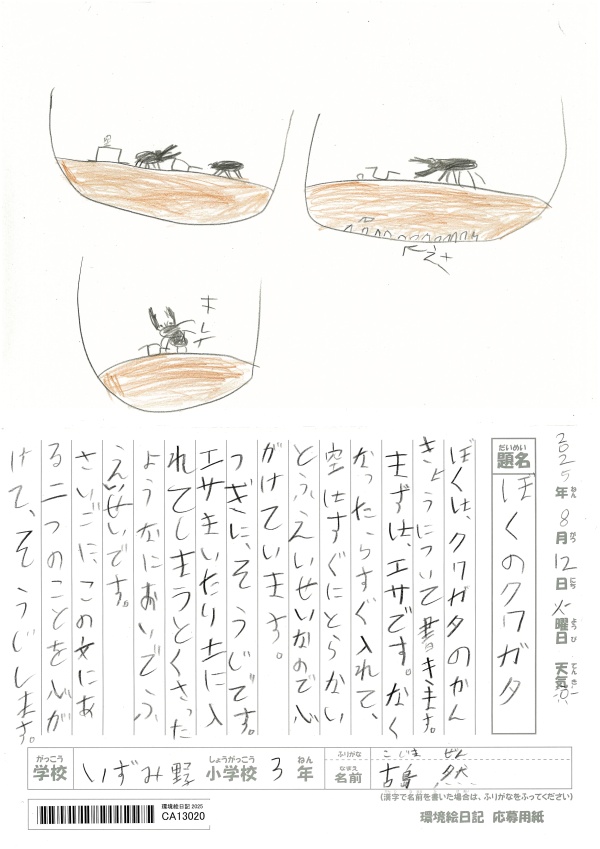 空
エサ
キレイ
2025年8月12日火曜日 天気
ねん がつ にち ようび てんき
だいめい
題名
ぼくのクワガタ
ぼくは、クワガタのかん
きょうについて書キます。
まずは、エサです。なく
なったらすぐ入れて、
空はすぐにとらない
とふえいせいなので心
がけています。
つぎに、そうじです。
エサまいたり土に入
れてしまうとくさった
ようなにおいでふ
えいせいです。
さいごに、この文にあ
る二つのことを心が
けて、そうじします。
がっこう しょうがっこう ねん ふりがな こじま ぜん
学校 いずみ野 小学校 3年 なまえ 名前 古島 然
(漢字で名前を書いた場合は、ふりがなをふってください)
環境絵日記 2025
CA13020
環境絵日記 応募用紙